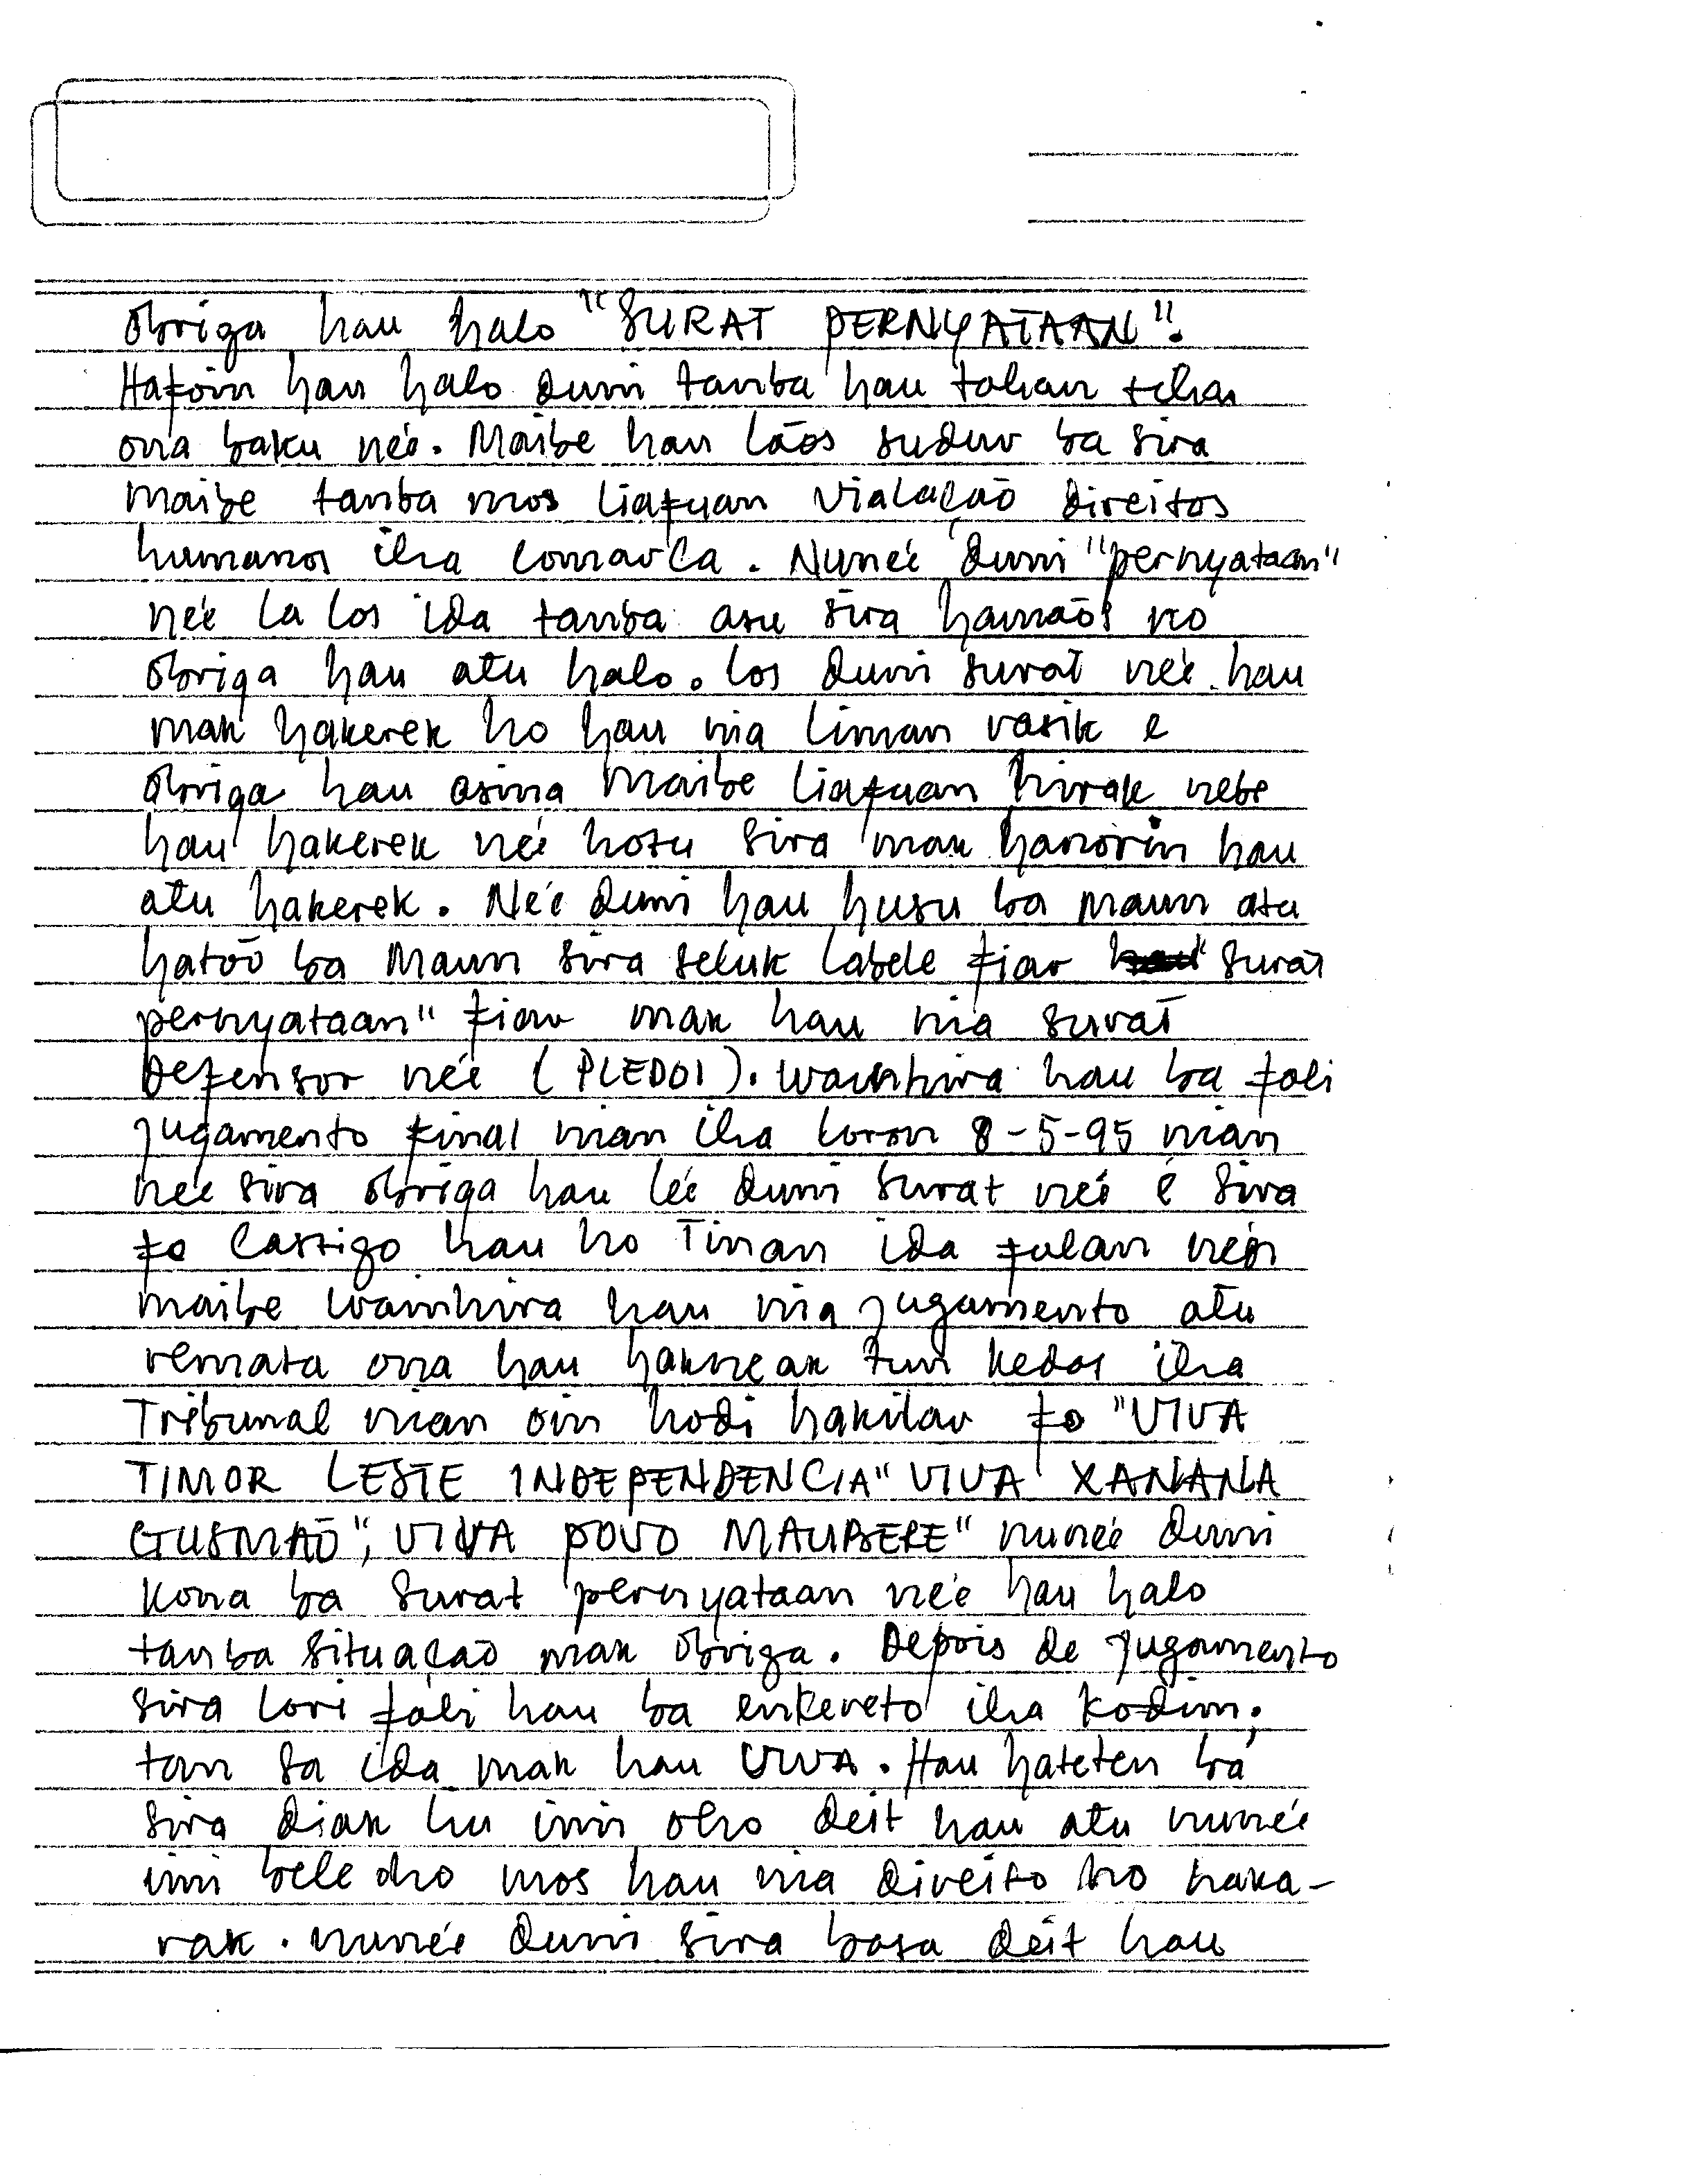 obriga hau halo "SURAT PERNYATAAN".
Hafoin hau halo duni tanba hau tahan tehan
ona baku neé. Maibe hau lãos sudur ba sira
maibe tanba mos liafuan vialação direitos
humanos iha comarca. Nuneé duni "pernyataan"
neé la los ida tanba asu sira hamaõs no
obriga hau atu halo. los duni surat neé hau
mak hakerek ho hau nia liman rasik e
obriga hau asina maibe liafuan hirak nebe
hau hakerek neé hotu sira mak hanorin hau
atu hakerek. Neé duni hau husu ba maun atu
hatoõ ba Maun sira seluk labele fiar "surat
pernyataan" fiar mak hau nia surat
Defensor neé (PLEDOI). Wainhira hau ba foli
jugamento final nian iha loron 8-5-95 nian
neé sira obriga hau leé duni surat neé é sira
fo Castigo hau ho Tinan ida fulan neén
maibe wainhira hau nia jugamento atu
remata ona hau hakneak tun kedas iha
Tribunal nian oin hodi hakilar fo "VIVA
TIMOR LESTE INDEPENDENCIA" VIVA XANANA
GUSMAÕ", VIVA POVO MAUBERE" nuneé duni
kona ba surat pernyataan neé hau halo
tanba situaçaõ mak obriga. Depois de jugamento
sira lori fáli hau ba enkereto iha kodim.
tan sa ida mak hau VIVA. Hau hateten bá
sira diak liu imi oho deit hau atu nuneé
imi bele oho mos hau nia direito ho haka-
rak. nuneé duni sira basa deit hau